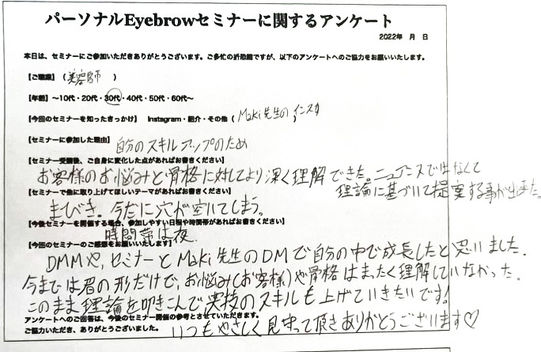 パーソナルEyebrowセミナーに関するアンケート
2022年　月　日
本日は、セミナーにご参加いただきありがとうございます。ご多忙の折恐縮ですが、以下のアンケートへのご協力をお願いいたします。
【ご職業】（美容師　）
【年齢】～10代・20代・30代・40代・50代・60代～
【今回のセミナーを知ったきっかけ】　Instagram・紹介・その他（Maki先生のインスタ
【セミナーに参加した理由】　自分のスキルアップのため
【セミナー受講後、ご自身に変化した点があればお書きください】
お客様のお悩みと骨格に対してより深く理解できた。ニュアンスではなくて
理論に基づいて提案する事が出来た。
【セミナーで他に取り上げてほしいテーマがあればお書きください】
まびき。今だに穴が空いてしまう。
【今後セミナーを開催する場合、参加しやすい日程や時間帯があればお書きください】
時間帯は夜
【今回のセミナーのご感想をお願いいたします】
DMMや、セミナーとMaki先生のDMで自分の中で成長したと思いました。
今までは眉の形だけで、お悩み(お客様)や骨格はまったく理解していなかった。
このまま理論を叩きこんで実技のスキルも上げていきたいです!
アンケートへのご回答は、今後のセミナー開催の参考とさせていただきます。
ご協力いただき、ありがとうございました。
いつもやさしく見守って頂きありがとうございます♡